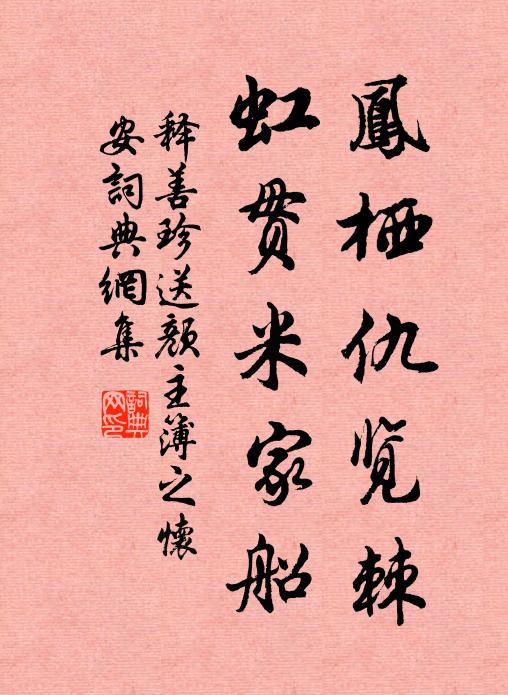 鳳栖仇览棘
虹贯米家船
释善珍送颜主簿之懷
安詞典網集
詞典
网印